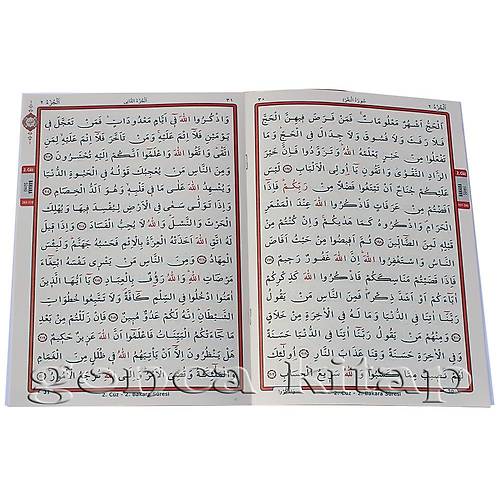 اَلْجُزْءُ ٢
سُورَةُ الْبَقَرَةِ
٣٠
اَلْحَجُّ اَشْهُرٌ مَعْلُومَاتٌ فَمَنْ فَرَضَ فِيهِنَّ الْحَجَّ
فَلَا رَفَثَ وَلَا فُسُوقَ وَلَا جِدَالَ فِي الْحَجِّ وَمَا
تَفْعَلُوا مِنْ خَيْرٍ يَعْلَمْهُ اللّٰهُ وَتَزَوَّدُوا فَاِنَّ خَيْرَ
الزَّادِ التَّقْوٰى وَاتَّقُونِ يَا اُولِي الْاَلْبَابِ لَيْسَ
عَلَيْكُمْ جُنَاحٌ اَنْ تَبْتَغُوا فَضْلًا مِنْ رَبِّكُمْ فَاِذَا
اَفَضْتُمْ مِنْ عَرَفَاتٍ فَاذْكُرُوا اللّٰهَ عِنْدَ الْمَشْعَرِ
الْحَرَامِ وَاذْكُرُوهُ كَمَا هَدٰيكُمْ وَاِنْ كُنْتُمْ مِنْ
قَبْلِهِ لَمِنَ الضَّالِّينَ ثُمَّ اَفِيضُوا مِنْ حَيْثُ اَفَاضَ
النَّاسُ وَاسْتَغْفِرُوا اللّٰهَ اِنَّ اللّٰهَ غَفُورٌ رَحِيمٌ
فَاِذَا قَضَيْتُمْ مَنَاسِكَكُمْ فَاذْكُرُوا اللّٰهَ كَذِكْرِكُمْ
اٰبَاءَكُمْ اَوْ اَشَدَّ ذِكْرًا فَمِنَ النَّاسِ مَنْ يَقُولُ
رَبَّنَا اٰتِنَا فِي الدُّنْيَا وَمَا لَهُ فِي الْاٰخِرَةِ مِنْ خَلَاقٍ
وَمِنْهُمْ مَنْ يَقُولُ رَبَّنَا اٰتِنَا فِي الدُّنْيَا حَسَنَةً
وَفِي الْاٰخِرَةِ حَسَنَةً وَقِنَا عَذَابَ النَّارِ اُولٰئِكَ
لَهُمْ نَصِيبٌ مِمَّا كَسَبُوا وَاللّٰهُ سَرِيعُ الْحِسَابِ
2. Cüz - 2. Bakara Sûresi
30
٣١
اَلْجُزْءُ الثَّانِي
اَلْجُزْءُ ٢
وَاذْكُرُوا اللّٰهَ فِي اَيَّامٍ مَعْدُودَاتٍ فَمَنْ تَعَجَّلَ فِي
يَوْمَيْنِ فَلَا اِثْمَ عَلَيْهِ وَمَنْ تَاَخَّرَ فَلَا اِثْمَ عَلَيْهِ لِمَنِ
اتَّقٰى وَاتَّقُوا اللّٰهَ وَاعْلَمُوا اَنَّكُمْ اِلَيْهِ تُحْشَرُونَ
وَمِنَ النَّاسِ مَنْ يُعْجِبُكَ قَوْلُهُ فِي الْحَيٰوةِ الدُّنْيَا
وَيُشْهِدُ اللّٰهَ عَلٰى مَا فِي قَلْبِهِ وَهُوَ اَلَدُّ الْخِصَامِ
وَاِذَا تَوَلّٰى سَعٰى فِي الْاَرْضِ لِيُفْسِدَ فِيهَا وَيُهْلِكَ
الْحَرْثَ وَالنَّسْلَ وَاللّٰهُ لَا يُحِبُّ الْفَسَادَ وَاِذَا قِيلَ
لَهُ اتَّقِ اللّٰهَ اَخَذَتْهُ الْعِزَّةُ بِالْاِثْمِ فَحَسْبُهُ جَهَنَّمُ وَلَبِئْسَ
الْمِهَادُ وَمِنَ النَّاسِ مَنْ يَشْرِي نَفْسَهُ ابْتِغَاءَ
مَرْضَاتِ اللّٰهِ وَاللّٰهُ رَؤُفٌ بِالْعِبَادِ يَا اَيُّهَا الَّذِينَ
اٰمَنُوا ادْخُلُوا فِي السِّلْمِ كَافَّةً وَلَا تَتَّبِعُوا خُطُوَاتِ
الشَّيْطَانِ اِنَّهُ لَكُمْ عَدُوٌّ مُبِينٌ فَاِنْ زَلَلْتُمْ مِنْ بَعْدِ
مَا جَاءَتْكُمُ الْبَيِّنَاتُ فَاعْلَمُوا اَنَّ اللّٰهَ عَزِيزٌ حَكِيمٌ
هَلْ يَنْظُرُونَ اِلَّا اَنْ يَاْتِيَهُمُ اللّٰهُ فِي ظُلَلٍ مِنَ الْغَمَامِ
وَالْمَلٰئِكَةُ وَقُضِيَ الْاَمْرُ وَاِلَى اللّٰهِ تُرْجَعُ الْاُمُورُ
31
2. Cüz - 2. Bakara Sûresi
2. Cüz
BAKARA
2. Cüz
BAKARA
gonca kitap